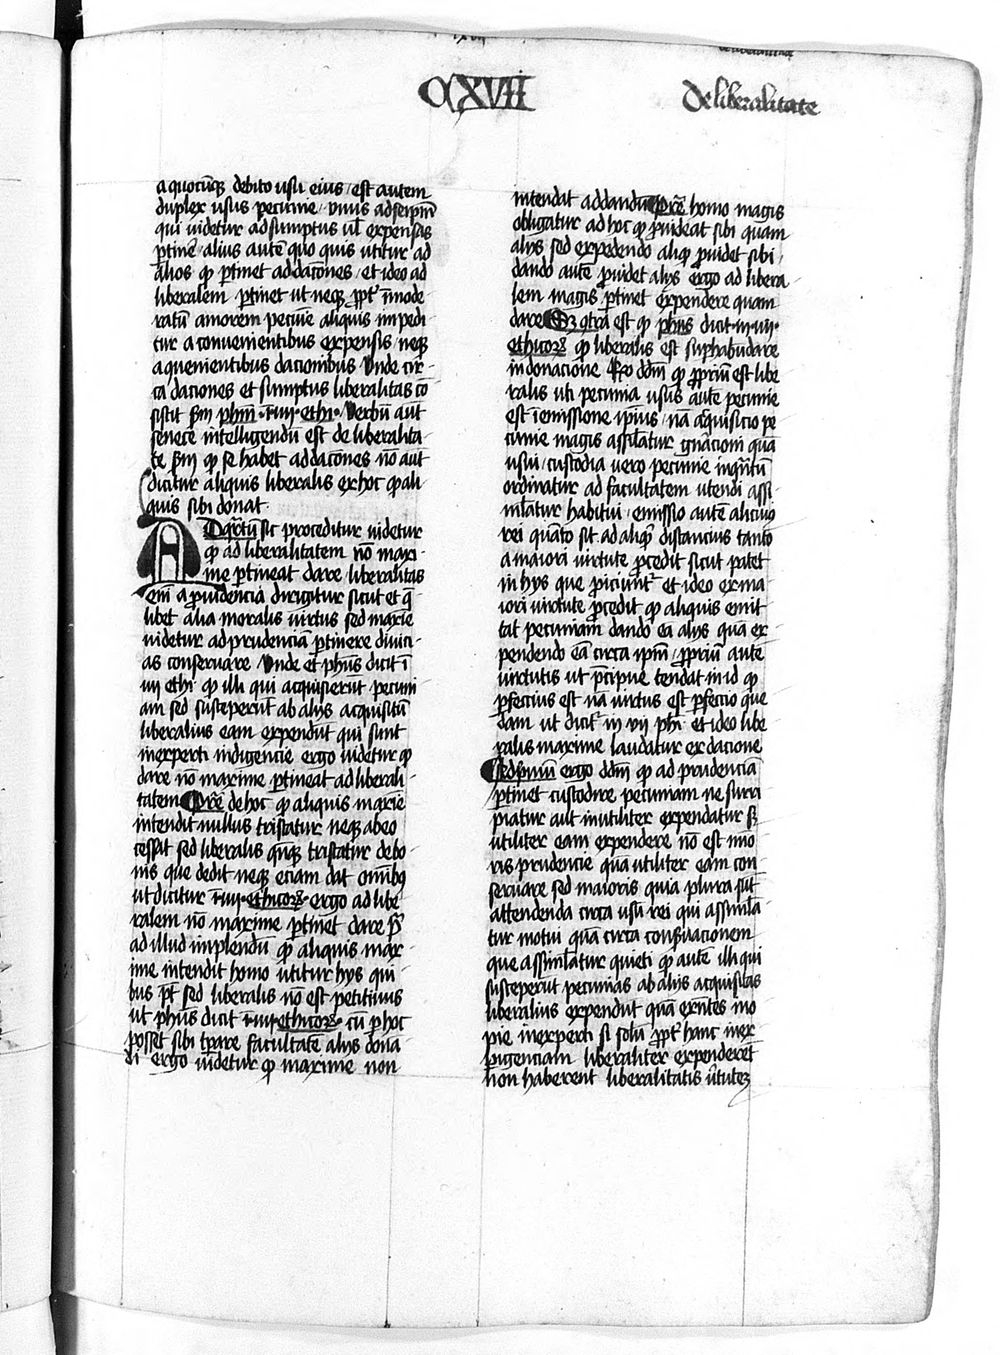 CXVII
de liberalitate
a quocūqȝ debito usu eius / est autem
duplex usus pecunie / unus ad seipm̄
qui uidetur ad sumptus ul̄ expensas
ꝑtine᷑ / alius autē quo quis utitur ad
alios qḋ ꝑtinet ad dacōnes / et ideo ad
liberalem ꝑtinet ut neqȝ ꝓpt̄ īmode
ratū amorem pecūie aliquis impedi
tur a conuenientibus expensis / neqȝ
a quenientibus dacionibus Unde cir
ca daciones et sumptus liberalitas cō
sistit ẜm phm̄ ·i·iiii· ethi· Verbū aut̄
senece intelligendū est de liberalita
te ẜm qḋ se habet ad dacōnes nō aut̄
dicitur aliquis liberalis ex hoc qḋ ali
quis sibi donat
AD q̄rtū sic proceditur uidetur
qḋ ad liberalitatem nō maxi
me ꝑtineat dare / liberalitas
em̄ a ꝓuidencia dirigitur sicut et q̄
libet alia moralis uirtus sed maxīe
uidetur ad prudenciā ꝑtinere diuici
as conseruare Unde et phūs dicit ī
iiij ethi· qḋ illi qui acquisierūt pecuni
am sed susceperūt ab aliis acquisitū
liberalius eam expendūt qui sunt
inexperti indigencie ergo uidetur qḋ
dare nō maxime ꝑtineat ad liberali
tatem Pretē de hoc qḋ aliquis maxīe
intendit nullus tristatur neqȝ ab eo
cessat sed liberalis qn̄qȝ tristatur de bo
nis que dedit neqȝ eciam dat omībꝰ
ut dicitur ·i·iiii· ethicorȝ ergo ad libe
ralem nō maxime ꝑtinet dare Pr̄
ad illud implendū qḋ aliquis max
ime intendit homo utitur hys qui
bus pt̄ sed liberalis nō est petitiuus
ut phūs dicit ·i·iiii· ethicorȝ· cū ꝑ hoc
posset sibi ꝑare facultatē alijs dona
di ergo uidetur qḋ maxime non
intendat ad dandū Pretē homo magis
obligatur ad hoc qḋ ꝓuideat sibi quam
alijs sed expēdendo aliqḋ ꝓuidet sibi /
dando autē ꝓuidet alijs ergo ad libera
lem magis ꝑtinet expendere quam
dare Sȝ qtrā est qḋ phūs dicit ·in·iiii·
ethicorȝ qḋ liberalis est suphabūdare
in donacione Rō ddm̄ qḋ ꝓpriū est libe
ralis uti pecunia usus autē pecunie
est ī emissione ipsius / nā acquisicio pe
cunie magis assil̄atur gn̄acioni quā
usui / custodia uero pecunie inqn̄tū
ordinatur ad facultatem utendi assi
mil̄atur habitui / emissio autē alicuiꝰ
rei quāto fit ad aliqḋ distancius tanto
a maiori uirtute ꝓcedit sicut patet
in hys que ꝓiciunt᷑ et ideo ex ma
iori uirtute ꝓcedit qḋ aliquis emit
tat pecuniam dando eā alijs quā ex
pendendo eā circa ipm̄ / ꝓpriū autē
uirtutis ut p̄cipue tendat in id qḋ
ꝑfectius est nā uirtus est ꝑfectio que
dam ut dicit᷑ in vij phi· et ideo libe
ralis maxime laudatur ex dacione
Ad pimū ergo ddm̄ qḋ ad prudenciā
ꝑtinet custodire pecuniam ne surri
piatur aut inutiliter expendatur sȝ
utiliter eam expendere nō est mīo
ris prudencie quā utiliter eam con
seruare sed maioris quia plura sūt
attendenda circa usū rei qui assimila
tur motui quā circa conẜuacionem
que assimil̄atur quieti qḋ autē illi qui
susceperūt pecunias ab aliis acquisitas
liberalius expendūt quā exn̄tes ino
pie inexperti si solū ꝓpt̄ hanc inex
perigenciam liberaliter expenderēt
non haberent liberalitatis ūtutēȝ